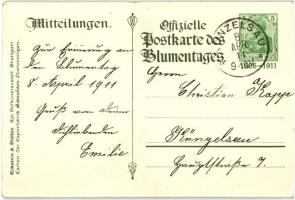 Mitteilungen.
Zur Erinnerung an
den Blumentag
8. April 1911
Gruß von deiner
Emilie
Offizielle
Postkarte des
Blumentages
KÜNZELSAU
8
APR
9-
1886-1911
5
Herrn
Christian Kapp
Künzelsau
Hauptstraße 7.